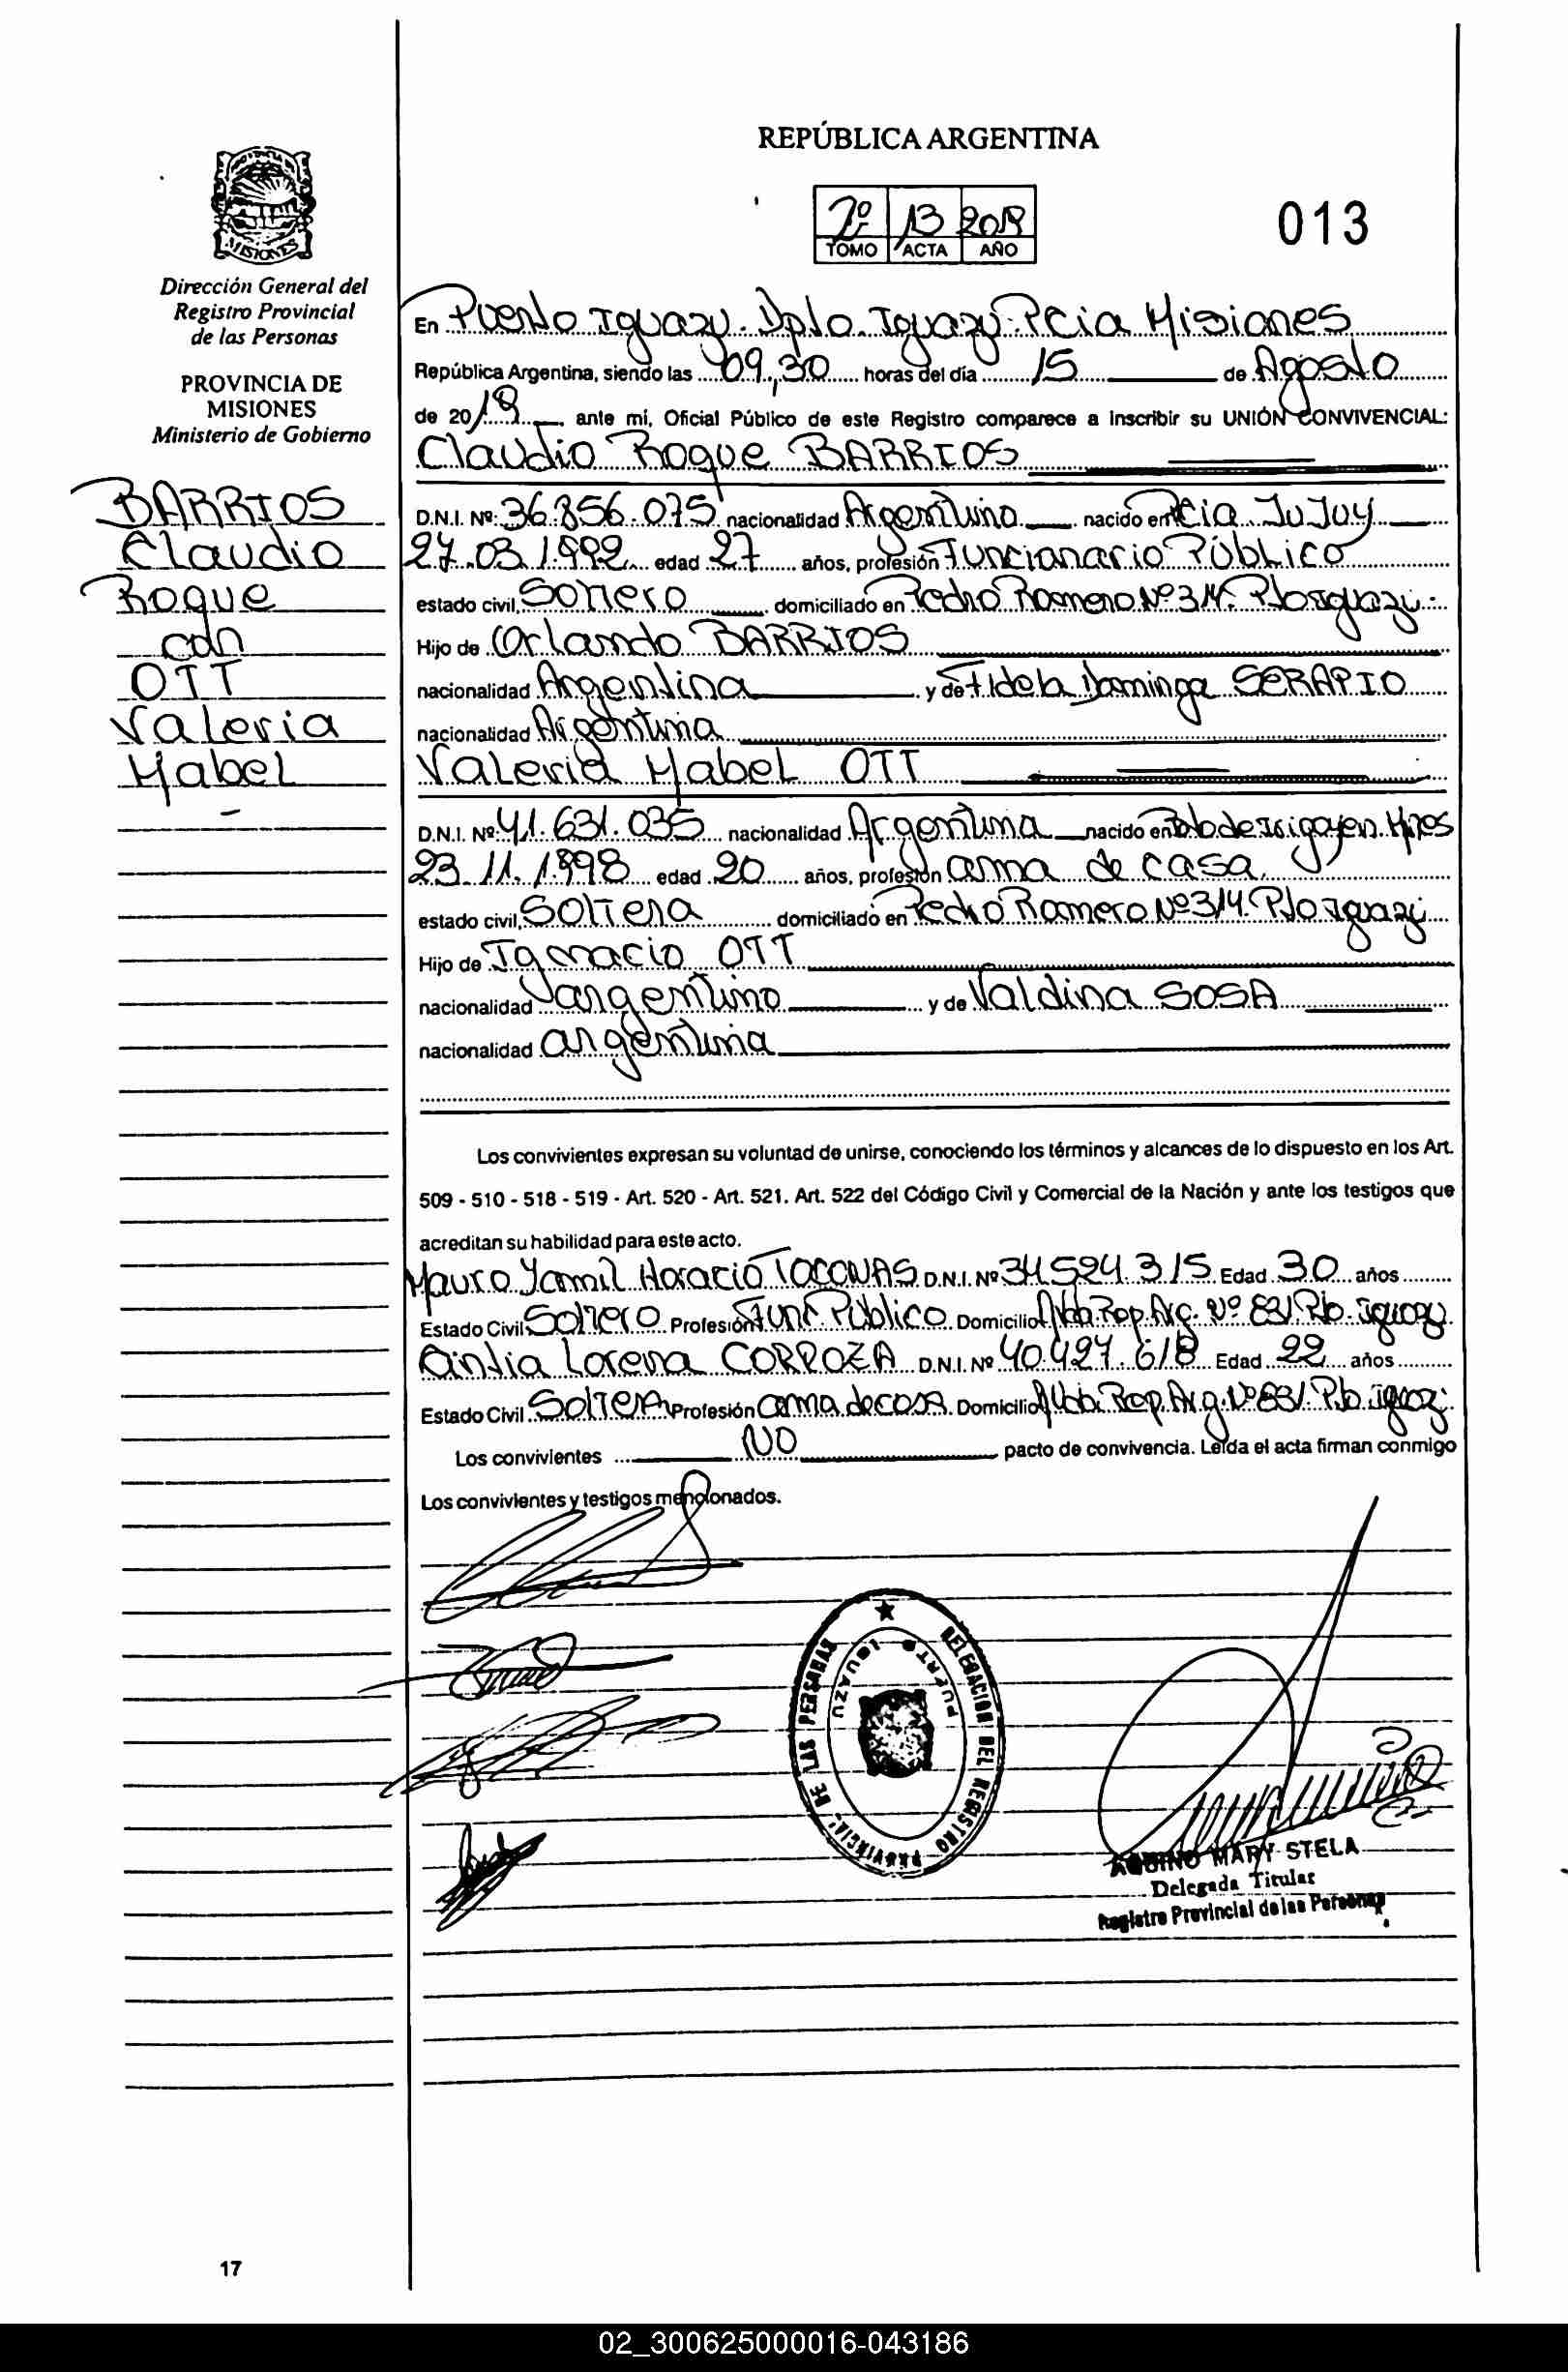 REPÚBLICA ARGENTINA
2º 13 2019
TOMO ACTA AÑO
013
MISIONES
Dirección General del
Registro Provincial
de las Personas
PROVINCIA DE
MISIONES
Ministerio de Gobierno
BARRIOS
Claudio
Roque
con
OTT
Valeria
Mabel
En Puerto Iguazú. Dpto. Iguazú. Pcia Misiones
República Argentina, siendo las 09,30 horas del día 15 de Agosto
de 2019 ante mí, Oficial Público de este Registro comparece a Inscribir su UNIÓN CONVIVENCIAL:
Claudio Roque BARRIOS
D.N.I. Nº: 36.856.075 nacionalidad Argentino nacido en Pcia JuJuy
27.03.1992 edad 27 años, profesión Funcionario Público
estado civil, Soltero domiciliado en Pedro Romero Nº 314. Pto Iguazú.
Hijo de Orlando BARRIOS
nacionalidad Argentina y de Fidela Dominga SERAPIO
nacionalidad Argentina
Valeria Mabel OTT
D.N.I. Nº: 41.631.035 nacionalidad Argentina nacido en de Irigoyen
23.11.1998 edad 20 años, profesión ama de casa
estado civil, Soltera domiciliado en Pedro Romero Nº 314. Pto Iguazú
Hijo de Ignacio OTT
nacionalidad argentino y de Valdina SOSA
nacionalidad argentina
Los convivientes expresan su voluntad de unirse, conociendo los términos y alcances de lo dispuesto en los Art.
509 - 510 - 518 - 519 - Art. 520 - Art. 521. Art. 522 del Código Civil y Comercial de la Nación y ante los testigos que
acreditan su habilidad para este acto.
Mauro Yamil Horacio TOCONAS D.N.I. Nº 34524315 Edad 30 años
Estado Civil Soltero Profesión Func. Público Domicilio Rep. Arg. Nº 831 Pto. Iguazú
Cintia Lorena CORROZA D.N.I. Nº 40.427.618 Edad 22 años
Estado Civil Soltera Profesión ama de casa Domicilio Rep. Arg. Nº 831. Pto. Iguazú
Los convivientes NO pacto de convivencia. Leída el acta firman conmigo
Los convivientes y testigos mencionados.
DELEGACION DEL REGISTRO PROVINCIAL DE LAS PERSONAS
PUERTO IGUAZU
AQUINO MARY STELA
Delegada Titular
Registro Provincial de las Personas
17
02_300625000016-043186